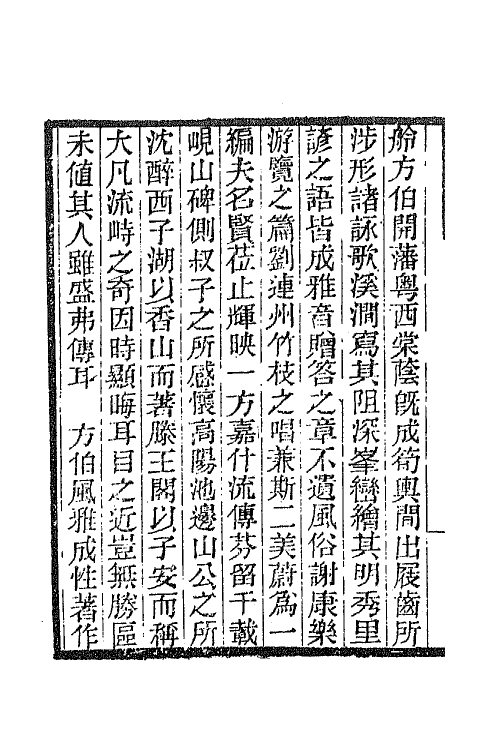 舲方伯開藩粤西棠蔭旣成筍輿間出屐齒所
涉形諸詠歌溪澗寫其阻深峯巒繪其明秀里
諺之語皆成雅音贈答之章不遺風俗謝康樂
游覽之篇劉連州竹枝之唱兼斯二美蔚爲一
編夫名賢莅止輝映一方嘉什流傳芬留千載
峴山碑側叔子之所感懷高陽池邊山公之所
沈醉西子湖以香山而著滕王閣以子安而稱
大凡流峙之奇因時顯晦耳目之近豈無勝區
未值其人雖盛弗傳耳　方伯風雅成性著作